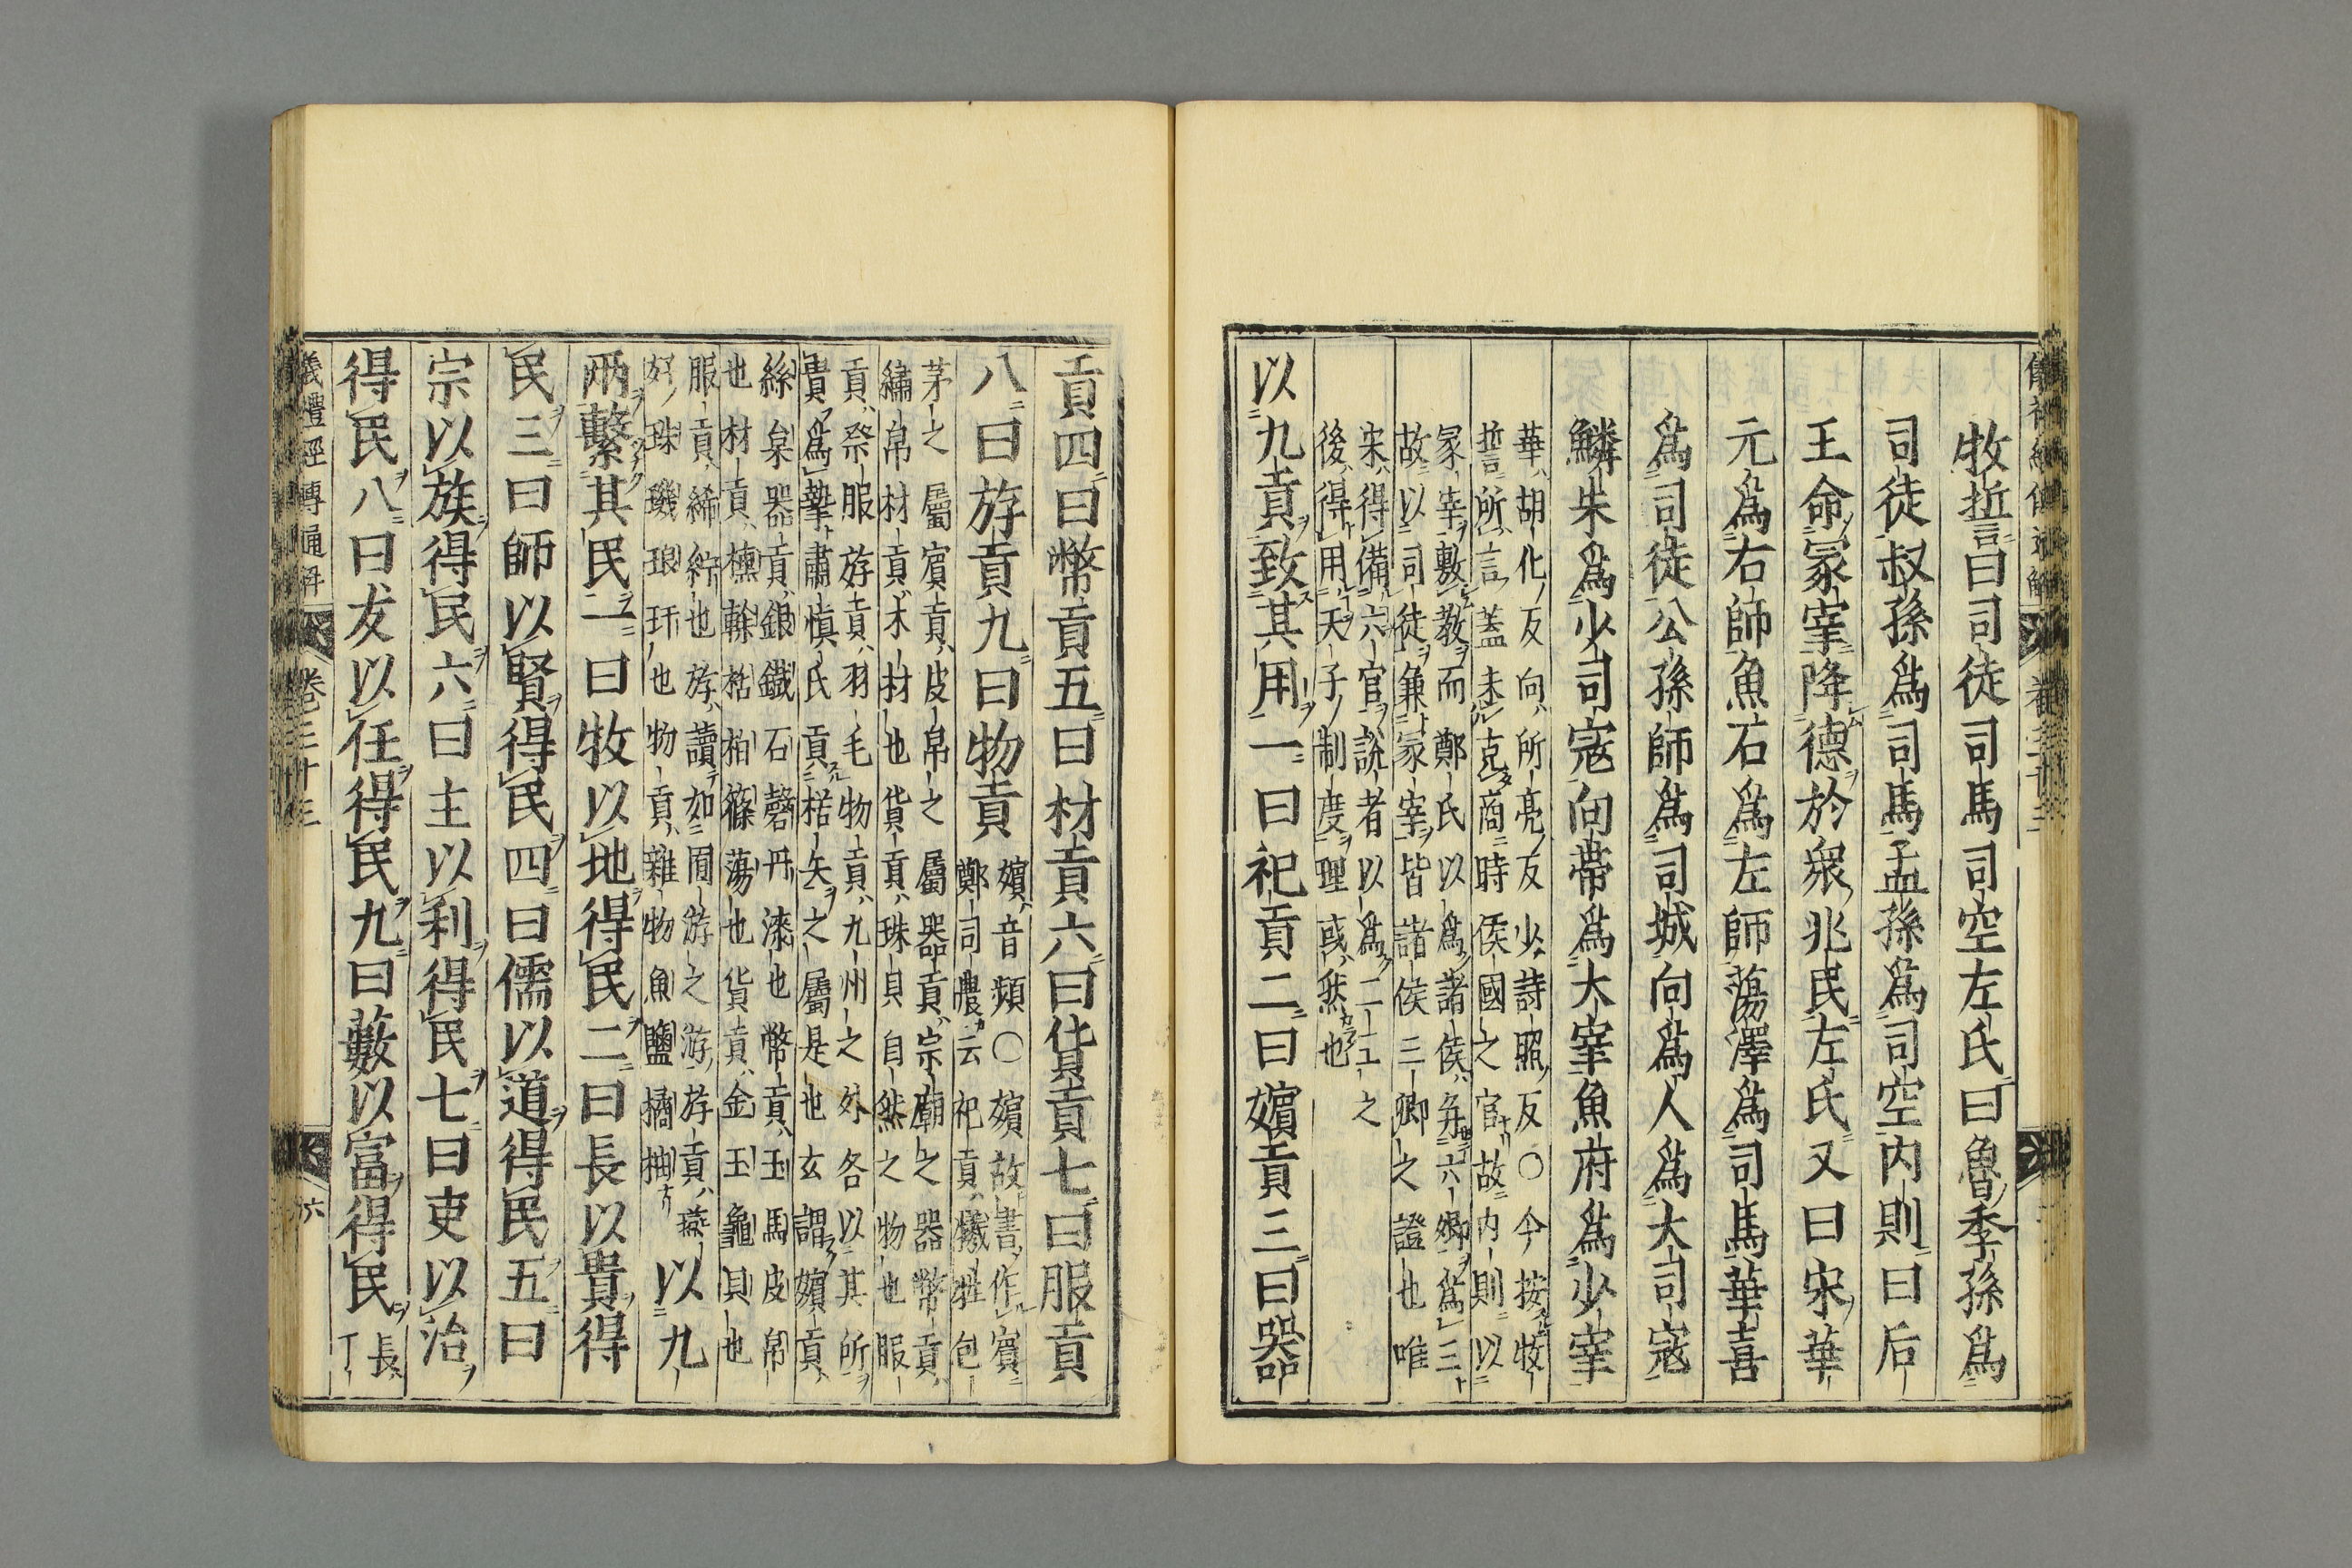 牧誓曰司徒司馬司空左氏曰魯季孫爲
司徒叔孫爲司馬孟孫爲司空内則曰后
王命冢宰降德於衆兆民左氏又曰宋華
元爲右師魚石爲左師蕩澤爲司馬華喜
爲司徒公孫師爲司城向爲人爲大司寇
鱗朱爲少司寇向帶爲大宰魚府爲少宰
華胡化反向所亮反少詩照反〇今按牧
誓所言蓋未克商時侯國之官故内則以
冢宰敷教而鄭氏以爲諸侯并六卿爲三
故以司徒兼冢宰皆諸侯三卿之證也唯
宋得備六官說者以爲二王之
後得用天子制度理或然也
以九貢致其用一曰祀貢二曰嬪貢三曰器
貢四曰幣貢五曰材貢六曰貨貢七曰服貢
八曰斿貢九曰物貢
嬪音頻〇嬪故書作賓
鄭司農云祀貢犧牲包
茅之屬賓貢皮帛之屬器貢宗廟之器幣貢
繡帛材貢木材也貨貢珠貝自然之物也服
貢祭服斿貢羽毛物貢九州之外各以其所
貴爲摯肅愼氏貢楛矢之屬是也玄謂嬪貢
絲枲器貢銀鐵石磬丹漆也幣貢玉馬皮帛
也材貢櫄幹栝柏篠蕩也貨貢金玉龜貝也
服貢絺紵也斿讀如囿游之游斿貢燕
好珠璣琅玕也物貢雜物魚鹽橘柚
以九
兩繫其民一曰牧以地得民二曰長以貴得
民三曰師以賢得民四曰儒以道得民五曰
宗以族得民六曰主以利得民七曰吏以治
得民八曰友以任得民九曰藪以富得民
長
丁
儀禮經傳通解
卷二十三
六